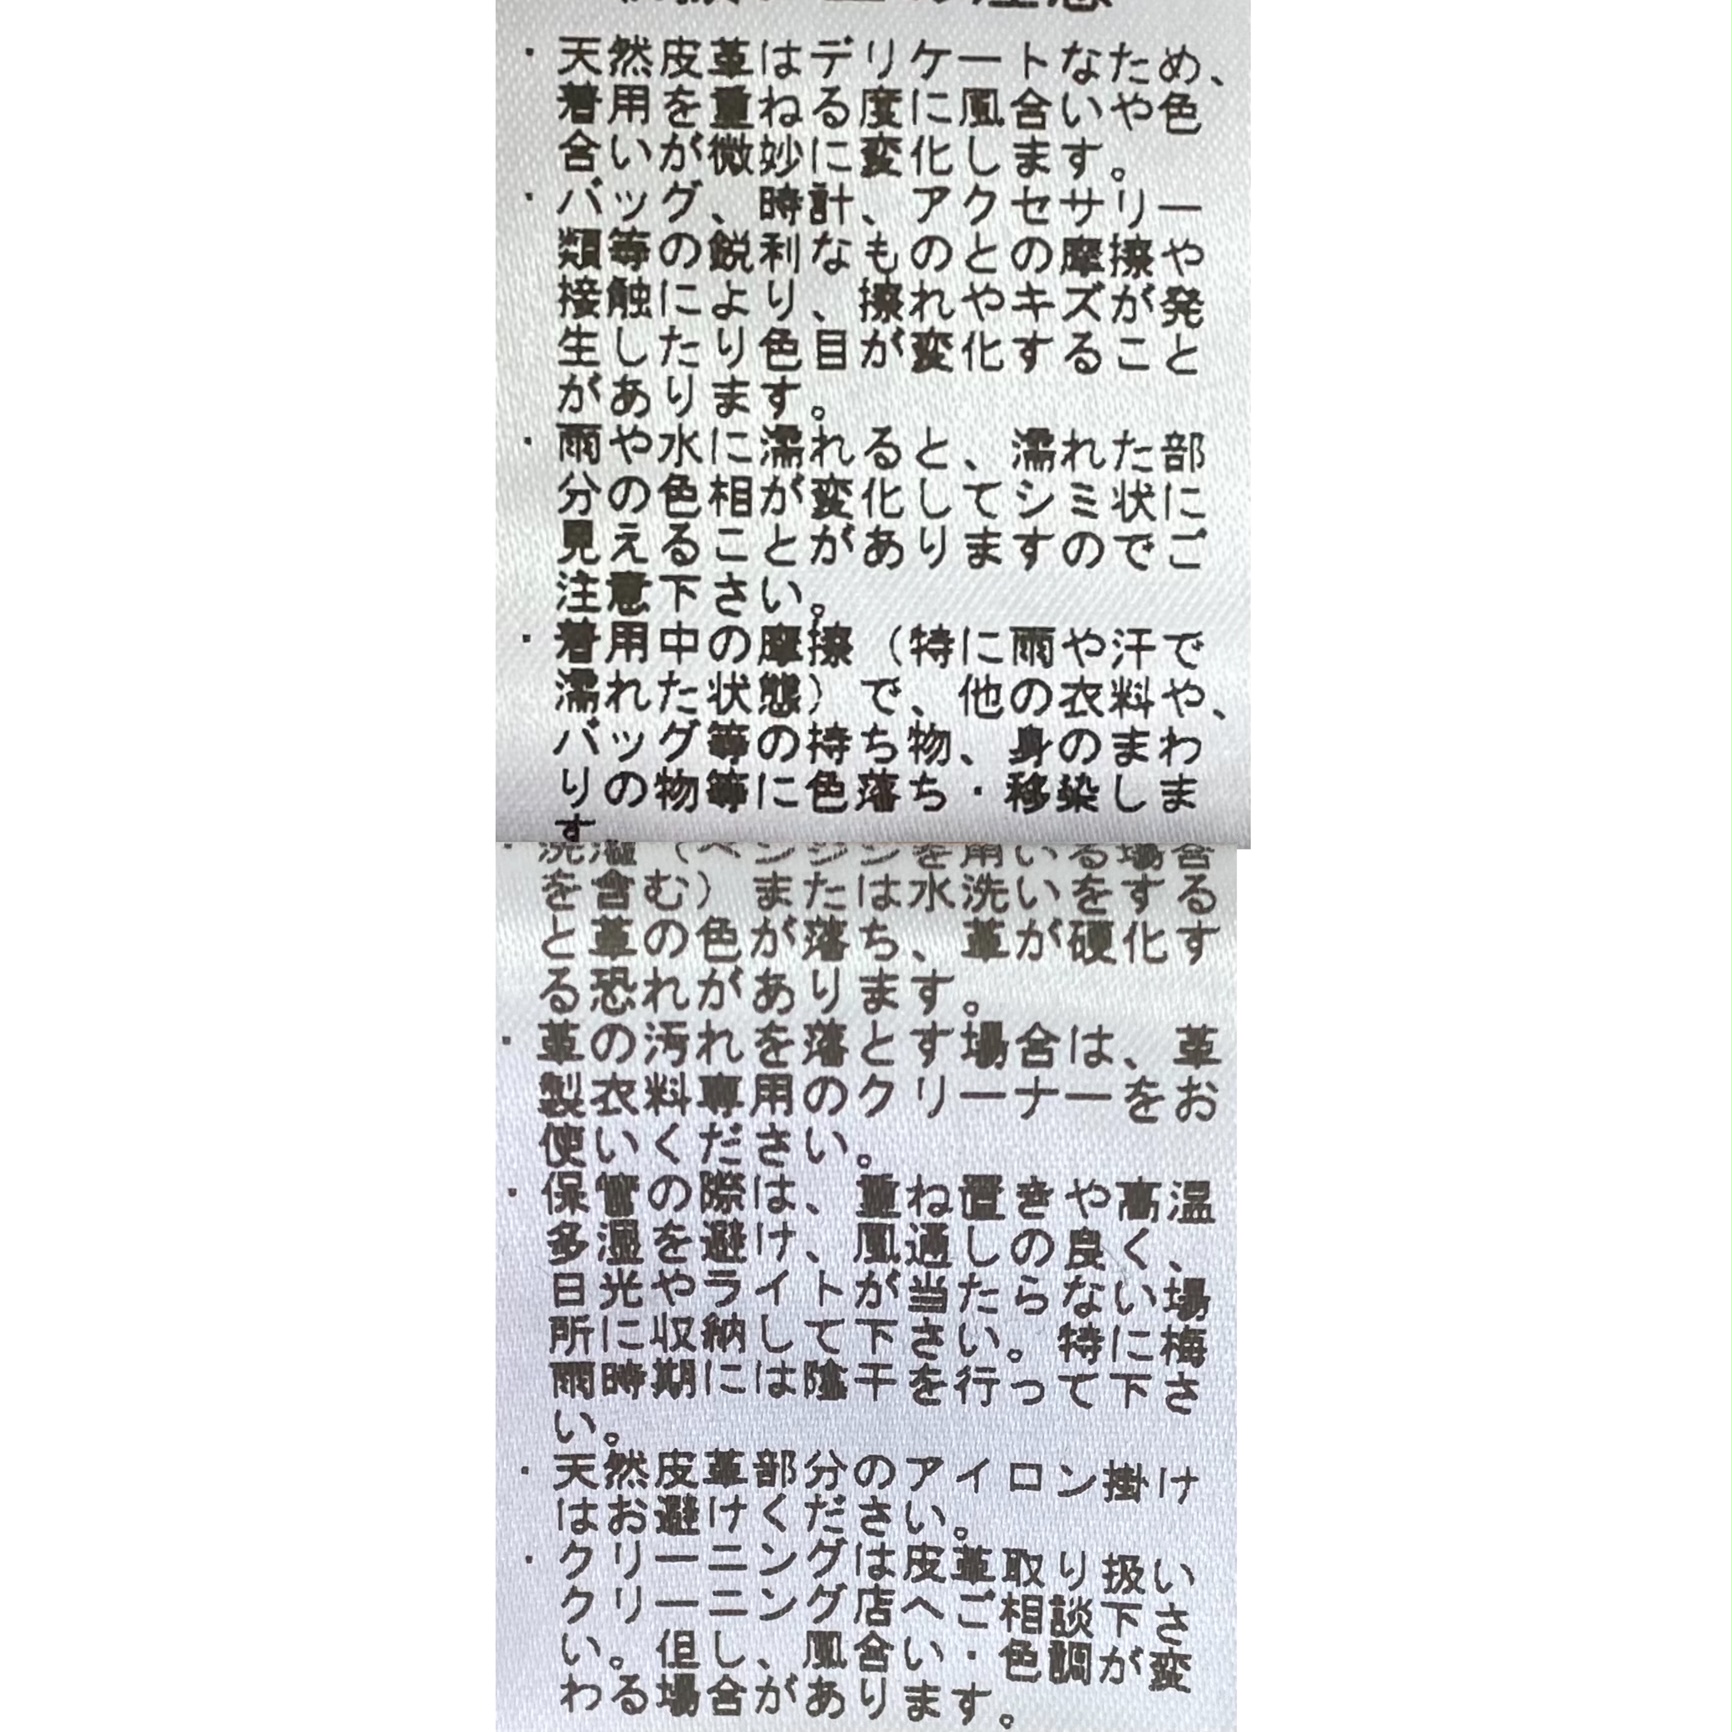 ・天然皮革はデリケートなため、
着用を重ねる度に風合いや色
合いが微妙に変化します。
・バッグ、時計、アクセサリー
類等の鋭利なものとの摩擦や
接触により、擦れやキズが発
生したり色目が変化すること
があります。
・雨や水に濡れると、濡れた部
分の色相が変化してシミ状に
見えることがありますのでご
注意下さい。
・着用中の摩擦（特に雨や汗で
濡れた状態）で、他の衣料や、
バッグ等の持ち物、身のまわ
りの物等に色落ち・移染しま
す
・洗濯（ベンジンを用いる場合
を含む）または水洗いをする
と革の色が落ち、革が硬化す
る恐れがあります。
・革の汚れを落とす場合は、革
製衣料専用のクリーナーをお
使いください。
・保管の際は、重ね置きや高温
多湿を避け、風通しの良く、
日光やライトが当たらない場
所に収納して下さい。特に梅
雨時期には陰干を行って下さ
い。
・天然皮革部分のアイロン掛け
はお避けください。
・クリーニングは皮革取り扱い
クリーニング店へご相談下さ
い。但し、風合い・色調が変
わる場合があります。